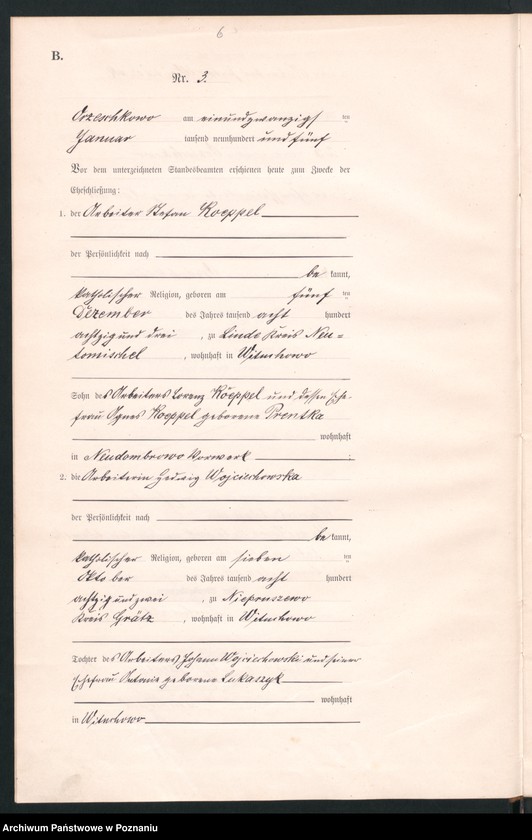 6
B.
Nr. 3.
Orzeschkowo am einundzwanzigsten
Januar tausend neunhundert und fünf
Vor dem unterzeichneten Standesbeamten erschienen heute zum Zwecke der
Eheschließung:
1. der Arbeiter Stefan Koeppel
der Persönlichkeit nach
be kannt,
katholischer Religion, geboren am fünf ten
Dezember des Jahres tausend acht hundert
achtzig und drei, zu Linde Kreis Neu=
tomischel, wohnhaft in Wituchowo
Sohn des Arbeiters Lorenz Koeppel und dessen Ehe-
frau Agnes Koeppel geborene Prentka
wohnhaft
in Neudombrowo Vorwerk
2. die Arbeiterin Hedwig Wojciechowska
der Persönlichkeit nach
be kannt,
katholischer Religion, geboren am sieben ten
Oktober des Jahres tausend acht hundert
achtzig und zwei, zu Niepruszewo
Kreis Grätz, wohnhaft in Wituchowo
Tochter des Arbeiters Johann Wojciechowski und seiner
Ehefrau Antonie geborene Lukaszyk
wohnhaft
in Wituchowo
Archiwum Państwowe w Poznaniu